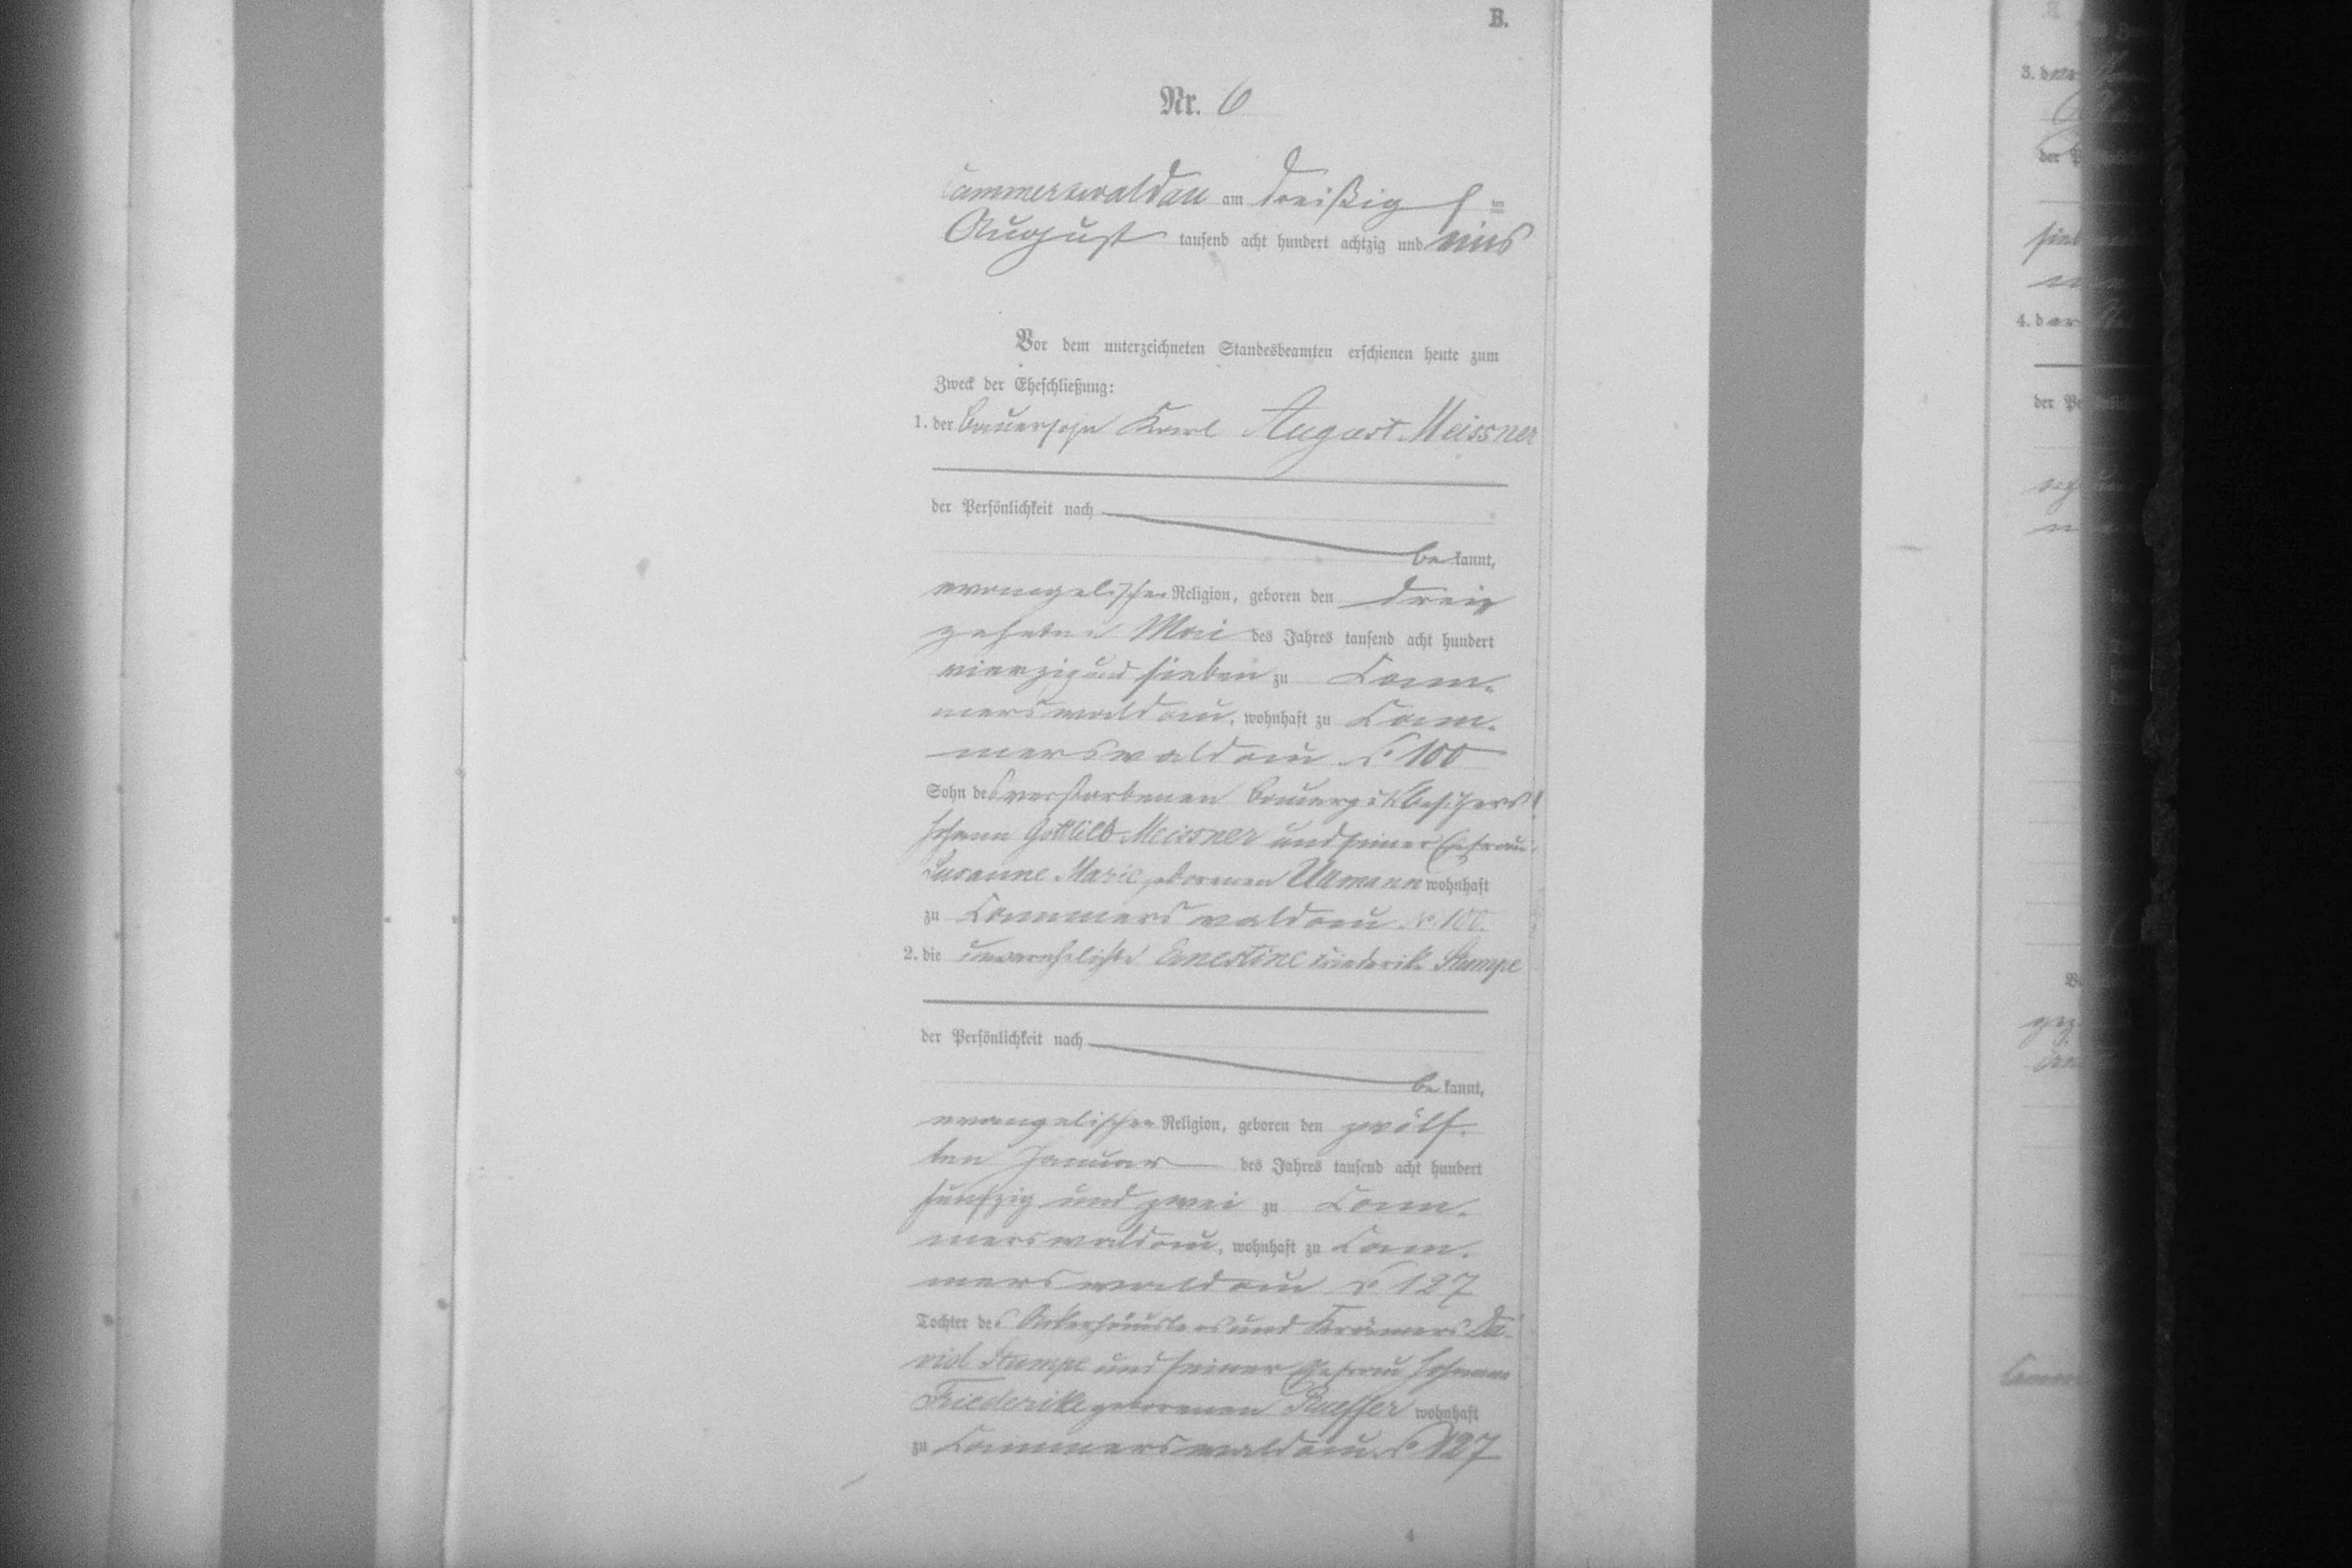 B.
Nr. 6
Cammerswaldau am dreißig sten
August tausend acht hundert achtzig und eins
Vor dem unterzeichneten Standesbeamten erschienen heute zum
Zweck der Eheschließung:
1. der Bauersohn Karl August Meissner
der Persönlichkeit nach
be kannt,
evangelischer Religion, geboren den drei
zehnten Mai des Jahres tausend acht hundert
vierzig und sieben zu Cam-
merswaldau, wohnhaft zu Cam-
merswaldau No 100
Sohn des verstorbenen Bauergutsbesitzers
Johann Gottlieb Meissner und seiner Ehefrau
Susanne Marie geborenen wohnhaft
zu Cammerswaldau No 100.
2. die unverehelichte Ernestine Friederike Stumpe
der Persönlichkeit nach
be kannt,
evangelischer Religion, geboren den zwölf-
ten Januar des Jahres tausend acht hundert
fünfzig und zwei zu Cam-
merswaldau, wohnhaft zu Cam-
merswaldau No 127
Tochter des Ackerhäuslers und Krämers Da-
vid Stumpe und seiner Ehefrau Johanne
Friederike geborenen wohnhaft
zu Cammerswaldau No 127
4
3. d
der P
4. d
der Pe